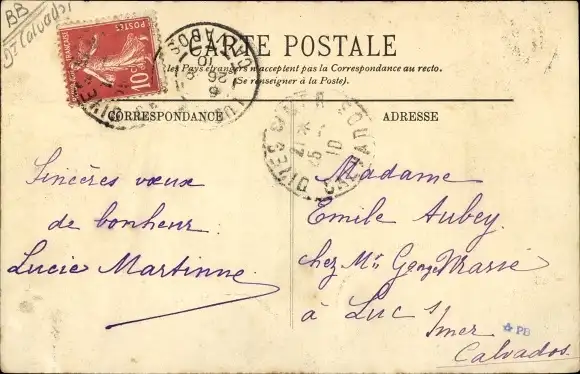 BB
Dt Calvados
POSTES
10c
CARTE POSTALE
les Pays étrangers n'acceptent pas la Correspondance au recto.
(Se renseigner à la Poste).
CORRESPONDANCE
ADRESSE
DIVES
CALVADOS
10
Sincères vœux
de bonheur
Lucie Martinne
Madame
Emile Aubey
chez Mr
à Luc s/
mer
Calvados
PB